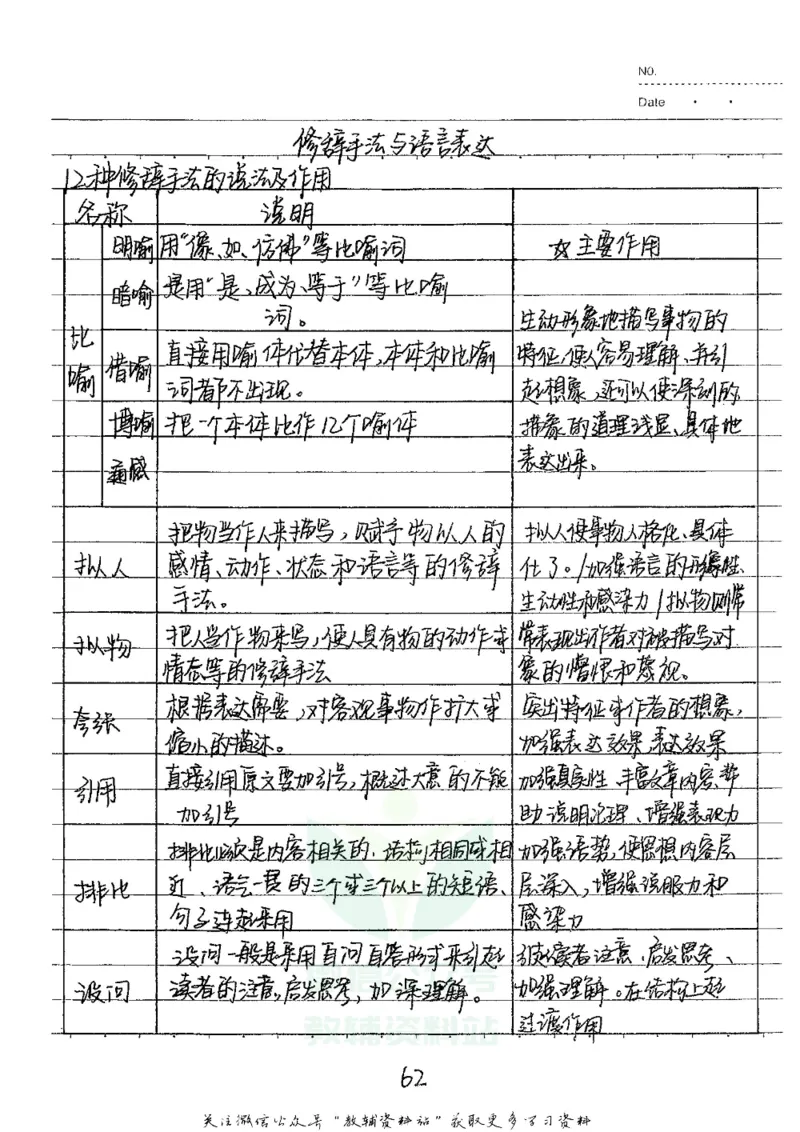 NO.
Date
修辞手法与语言表达
12种修辞手法的说法及作用
名称 说明
比喻
明喻 用“像、如、仿佛”等比喻词 ☆主要作用
暗喻 是用“是、成为、等于”等比喻
词。
借喻 直接用喻体代替本体,本体和比喻
词都不出现。
博喻 把一个本体比作12个喻体
通感
生动形象地描写事物的
特征,使人容易理解、并引
起想象,还可以使深刻的
抽象的道理浅显、具体地
表达出来。
拟人 把物当作人来描写,赋予物以人的
感情、动作、状态和语言等的修辞
手法。
拟人使事物人格化、具体
化了。/加强语言的形象性、
生动性和感染力/拟物则常
常表现出作者对被描写对
象的憎恨和蔑视。
拟物 把人当作物来写,使人具有物的动作或
情态等的修辞手法
夸张 根据表达需要,对客观事物作扩大或
缩小的描述。
突出特征或作者的想象,
加强表达效果,表达效果
引用 直接引用原文要加引号,概述大意的不能
加引号
加强真实性、丰富文章内容、帮
助说明论理、增强表现力
排比 排比必须是内容相关的、结构相同或相
近、语气一贯的三个或三个以上的短语、
句子连起来用
加强语势,使思想内容层
层深入,增强说服力和
感染力
设问 设问一般是采用自问自答形式来引起
读者的注意,启发思考,加深理解。
引起读者注意,启发思考、
加强理解。在结构上起
过渡作用
教辅资料站
62
关注微信公众号“教辅资料站”获取更多学习资料